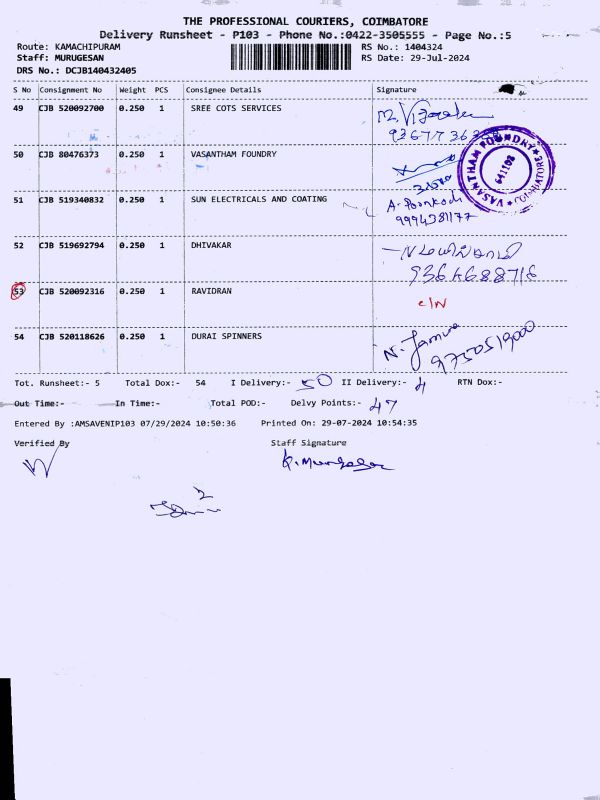 THE PROFESSIONAL COURIERS, COIMBATORE
Delivery Runsheet - P103 - Phone No.:0422-3505555 - Page No.:5
Route: KAMACHIPURAM RS No.: 1404324
Staff: MURUGESAN RS Date: 29-Jul-2024
DRS No.: DCJB140432405
S No Consignment No Weight PCS Consignee Details Signature
49 CJB 520092700 0.250 1 SREE COTS SERVICES
50 CJB 80476373 0.250 1 VASANTHAM FOUNDRY
VASANTHAM FOUNDRY COIMBATORE 641108
51 CJB 519340832 0.250 1 SUN ELECTRICALS AND COATING A. Ponkodi
9994381177
52 CJB 519692794 0.250 1 DHIVAKAR
9364688716
53 CJB 520092316 0.250 1 RAVIDRAN C/N
54 CJB 520118626 0.250 1 DURAI SPINNERS N. Jamuna
9750519000
Tot. Runsheet:- 5 Total Dox:- 54 I Delivery:- 50 II Delivery:- 4 RTN Dox:-
Out Time:- In Time:- Total POD:- Delvy Points:- 47
Entered By :AMSAVENIP103 07/29/2024 10:50:36 Printed On: 29-07-2024 10:54:35
Verified By Staff Signature
K. Murugesan
2